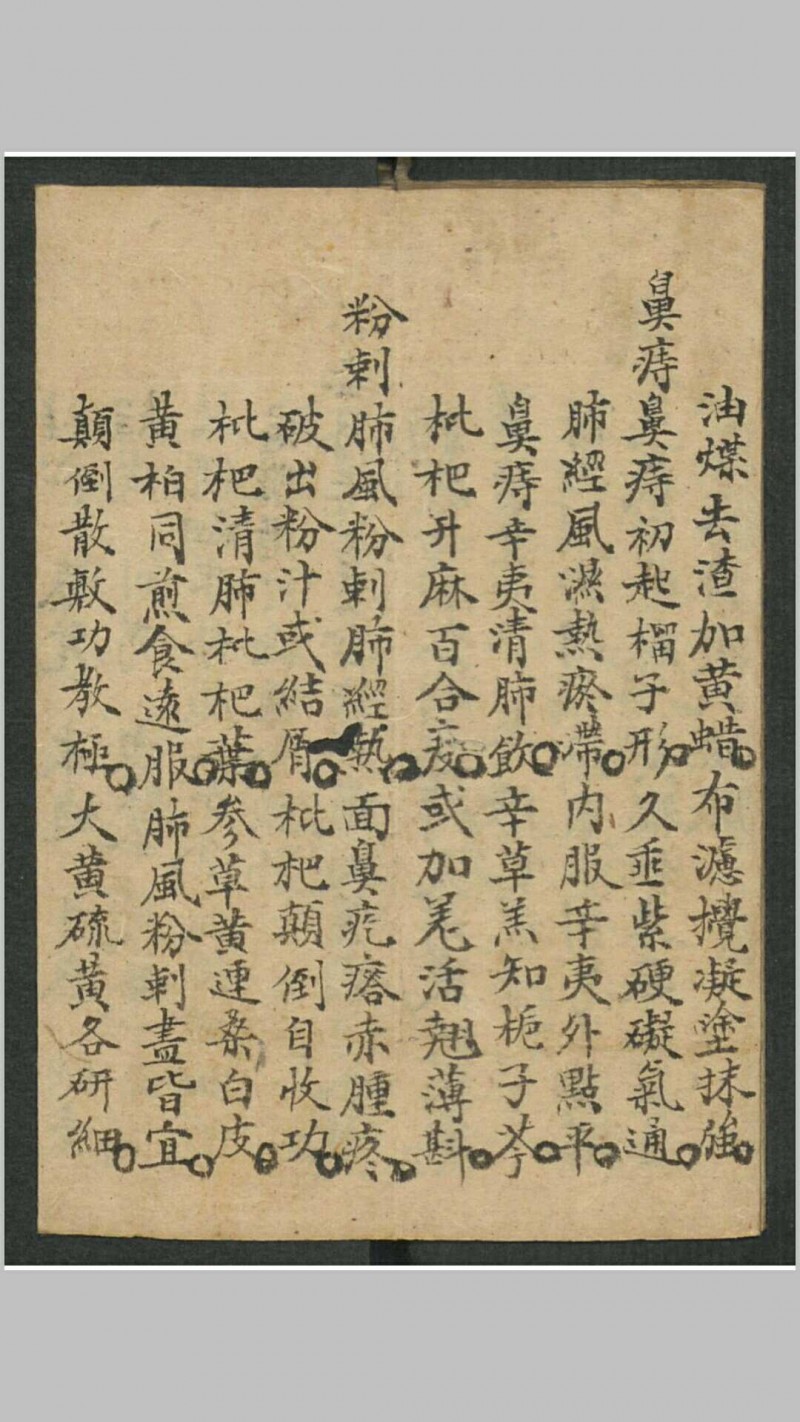 油煠去渣加黄蜡布濾攪凝塗抹強
鼻痔鼻痔初起榴子形久垂紫硬礙氣通
肺經風濕熱瘀滯内服辛夷外點平
鼻痔辛夷清肺飲辛草羔知梔子芩
枇杷升麻百合或加羌活翹薄斟
粉刺肺風粉刺肺經熱面鼻疙瘩赤腫疼
破出粉汁或結屑枇杷顛倒自收功
枇杷清肺枇杷葉参草黄連桑白皮
黄柏同煎食遠服肺風粉刺盡皆宜
顛倒散敷功教極大黄硫黄各研細